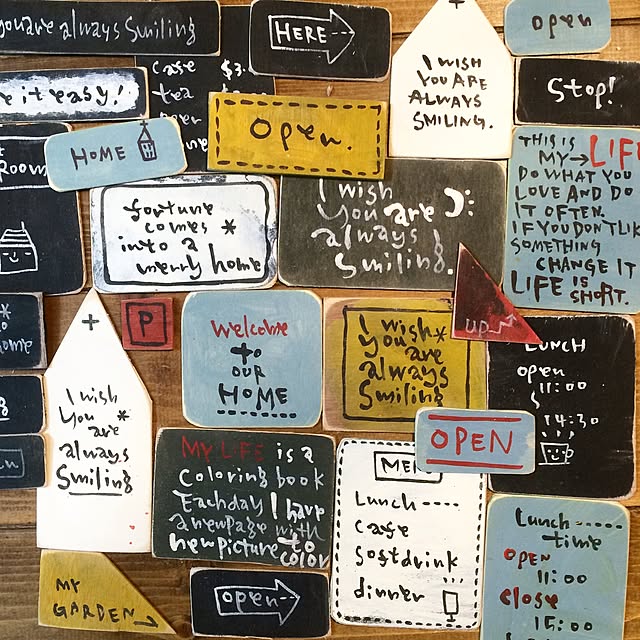 you are always Smiling
HERE
open
I WISH
YOU ARE
ALWAYS
SMILING.
case $3.
tea
e it easy!
Stop!
Open.
HOME
Room
THIS IS
MY→LIF
DO WHAT YOU
LOVE AND DO
IT OFTEN.
IF YOU DON'T LIK
SOMETHING
CHANGE IT
LIFE IS
SHORT.
fortune
comes *
into a
merry home
I wish
You are
always
Smiling.
UP
P
Welcome
to
OUR
HOME
I wish*
You are
always
Smiling
LUNCH
open
11:00
14:30
*
to
home
I wish
You *
are
always
Smiling
OPEN
MY LIFE is a
Coloring book
Eachday I have
a newpage with
new picture to
color
ME
Lunch ----
case
softdrink
dinner
Lunch -----
time
OPEN
11:00
Close
15:00
MY
GARDEN
open